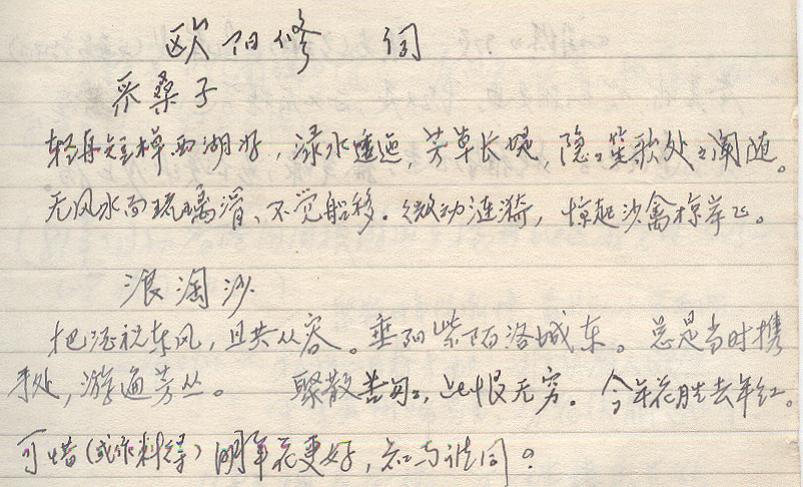 欧阳修 词
采桑子
轻舟短棹西湖游，渌水逶迤，芳草长堤，隐々笙歌处々闻随。
无风水面琉璃滑、不觉船移。微动涟漪，惊起沙禽掠岸飞。
浪淘沙
把酒祝东风，且共从容。垂阳紫陌洛城东。总是当时携
手处，游遍芳丛。 聚散苦匆々，此恨无穷。今年花胜去年红。
可惜（或作料得）明年花更好，知与谁同？